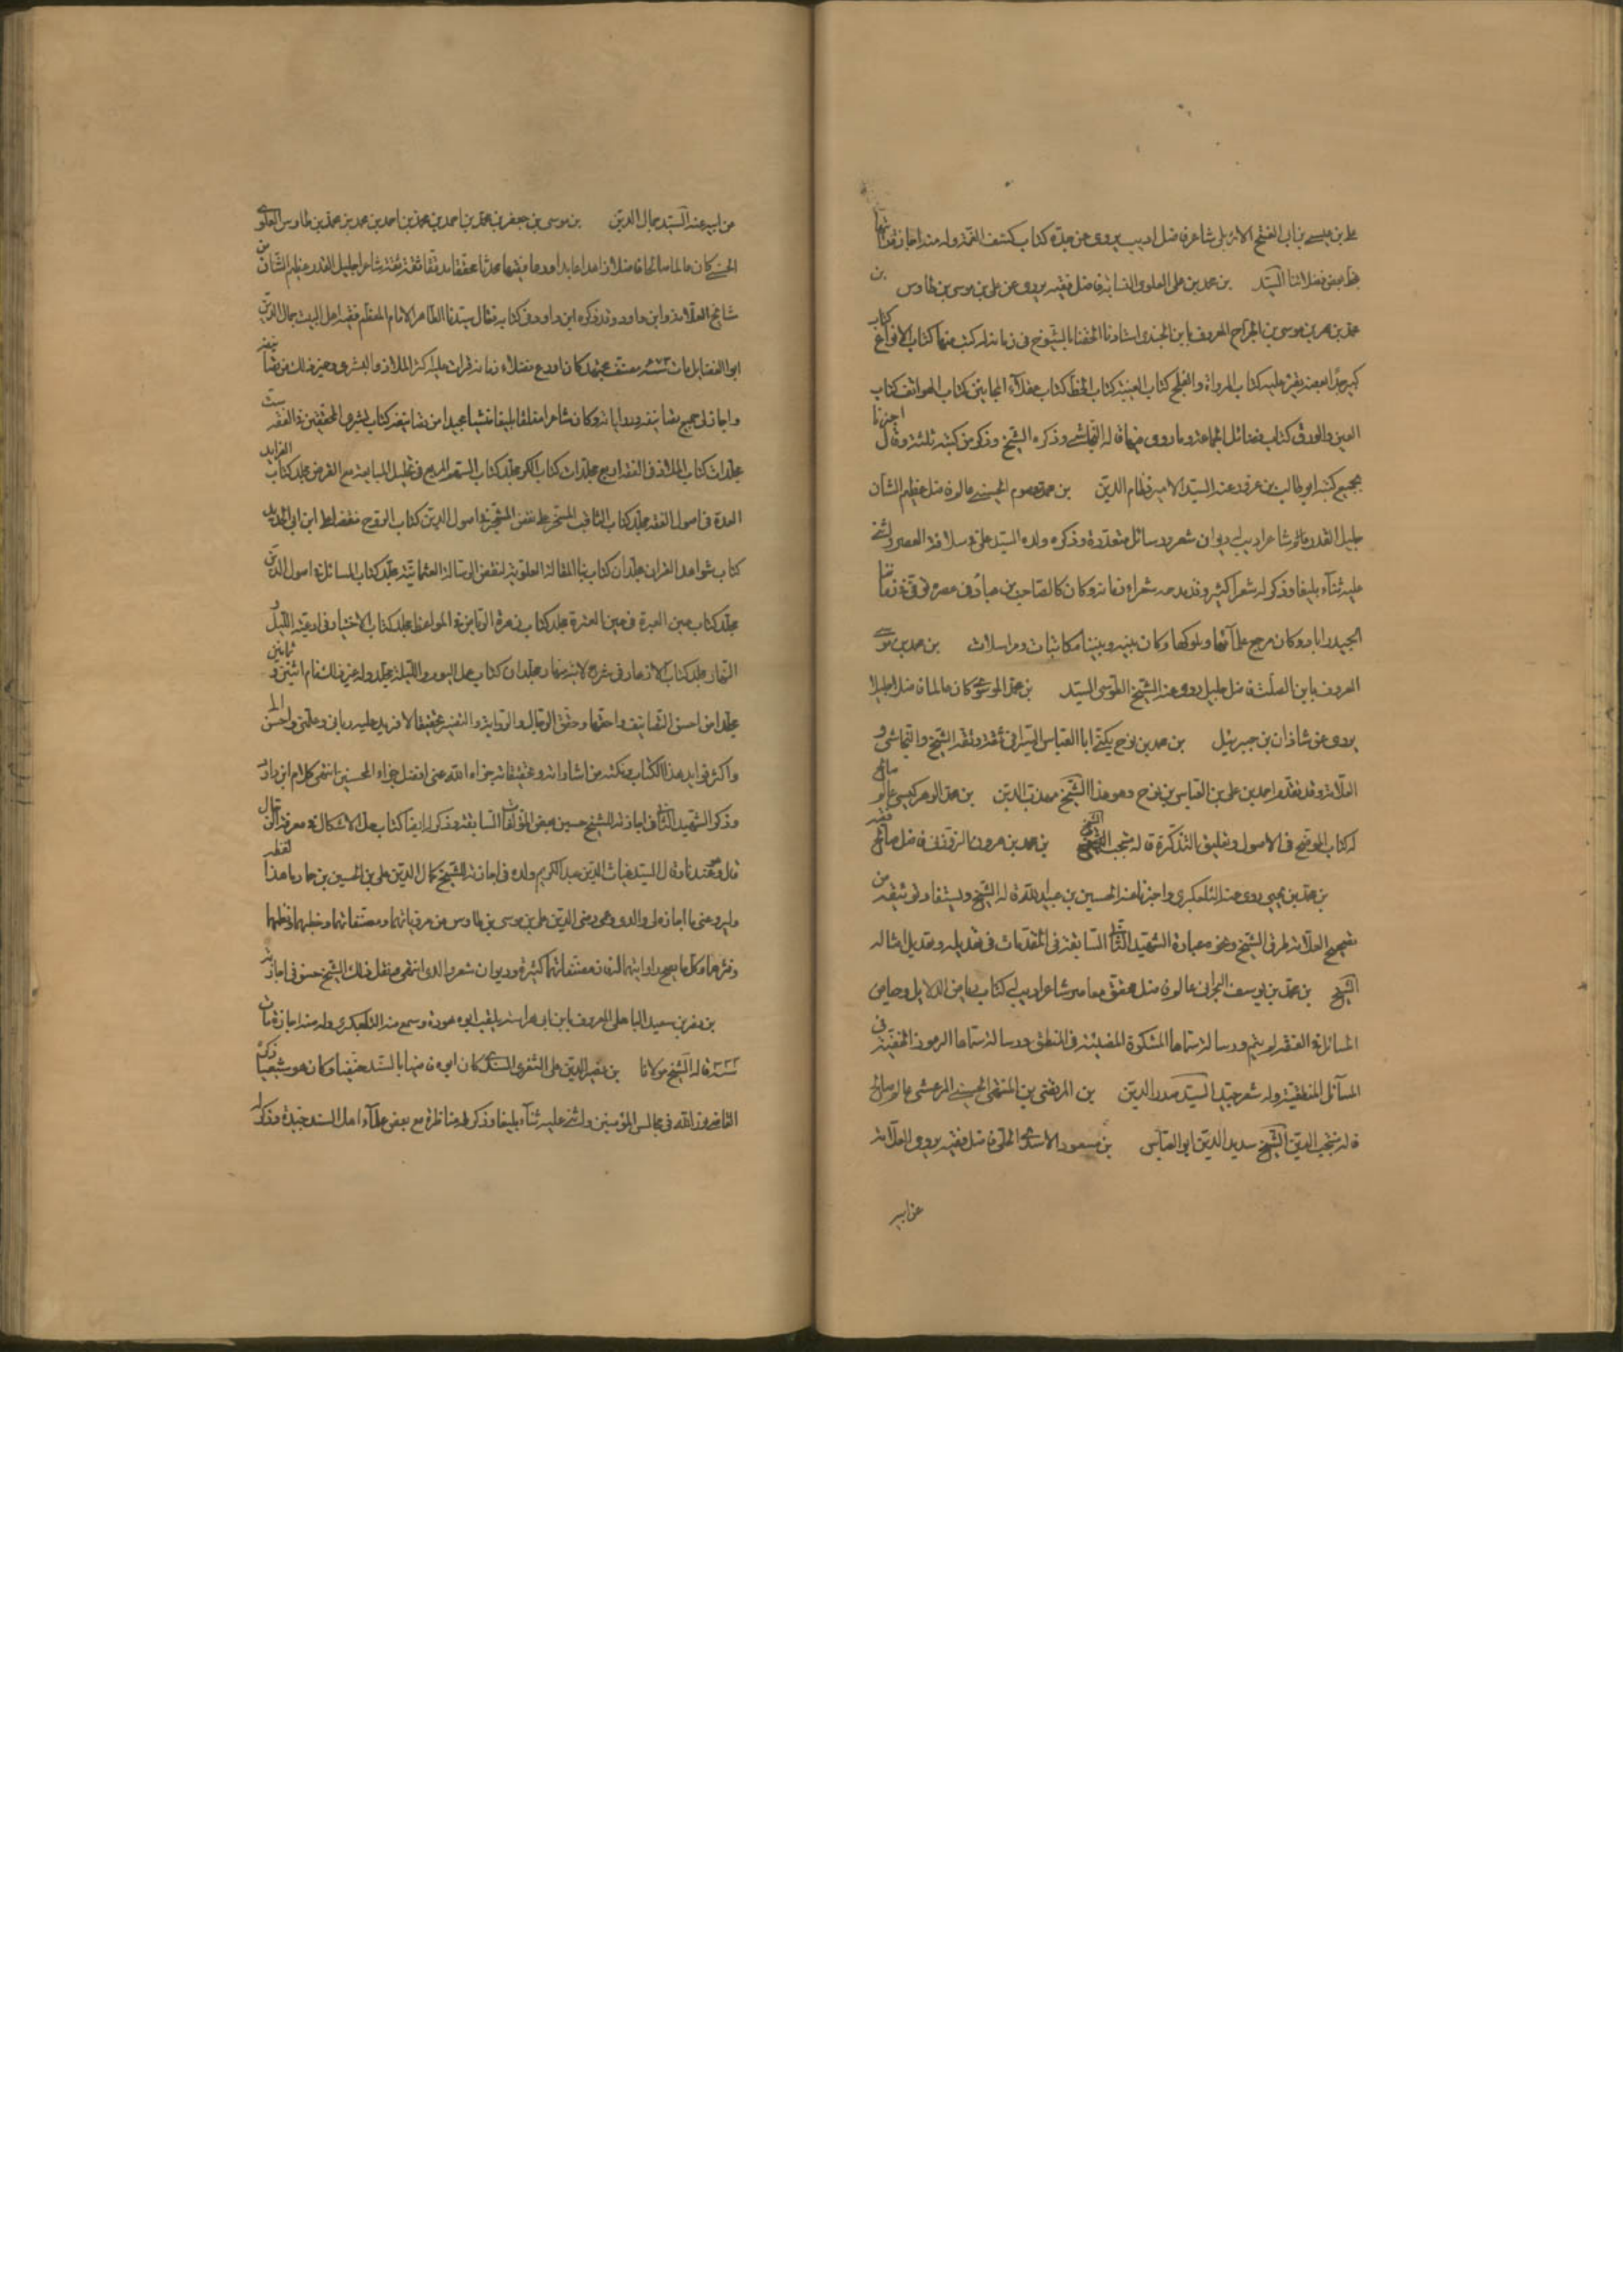 علي بن عيسى بن ابى الفتح الاربلى شاعر فاضل اديب يروى عن جده كتاب كشف الغمة وله منه اجازة رأيتها
بخط بعض فضلائنا السيد بن محمد بن على العلوى النسابة فاضل فقيه يروى عن على بن موسى بن طاوس بن
محمد بن عمر بن موسى بن الجراح المعروف بابن الجندى استادنا الحقنا بالشيوخ فى زمانه له كتب منها كتاب الانواع كتاب
كبير جدا بعضه يقرء عليه كتاب الرواة والفلج كتاب الغيبة كتاب الخط كتاب عقلاء المجانين كتاب الهواتف كتاب
العين والورق كتاب فضائل الجماعة وما روى فيها قاله النجاشى وذكره الشيخ وذكر من كتبه ثلثة وقال اخبرنا
بجميع كتبه ابو طالب بن عرفه عنه السيد الامير نظام الدين بن محمد معصوم الحسينى عالم فاضل عظيم الشان
جليل القدر عالم شاعر اديب له ديوان شعر ورسائل متعددة وذكره ولده السيد على فى سلافة العصر واثنى
عليه ثناء بليغا وذكر له شعرا كثيرا وقد مدحه شعراء زمانه وكان كالصاحب بن عباد فى عصره توفى فى زماننا
بحيدراباد وكان مرجع علمائها وملوكها وكان بينه وبيننا مكاتبات ومراسلات بن محمد بن موسى
المعروف بابن الصلت فاضل جليل روى عنه الشيخ الطوسى السيد بن محمد الموسوى كان عالما فاضلا جليلا
يروى عن شاذان بن جبرئيل بن محمد بن نوح يكنى ابا العباس السيرافى ثقة وثقه الشيخ والنجاشى و
العلامة وقد تقدم احمد بن على بن العباس بن نوح وهو هذا الشيخ مهذب الدين بن محمد الوهركيسى عالم صالح
له كتاب الموضح فى الاصول وتعليق التذكرة قاله منتجب الدين الشيخ بن محمد بن هرون الزوزنى فاضل صالح فقيه
بن محمد بن يحيى روى عنه التلعكبرى واخبرنا عنه الحسين بن عبيد الله قاله الشيخ ويستفاد توثيقه من
تصحيح العلامة طرق الشيخ ونحوه عبارة الشهيد الثانى السابقة فى المقدمات فى تعديله وتعديل امثاله
الشيخ بن محمد بن يوسف البحرانى عالم فاضل محقق معاصر شاعر اديب له كتاب رياض الدلايل وحياض
المسائل فى الفقه لم يتم ورسالة سماها المشكوة المضيئة فى المنطق ورسالة سماها الرموز الخفية فى
المسائل المنطقية وله شعر جيد السيد صدر الدين بن المرتضى بن المنتهى الحسينى المرعشى عالم صالح
قاله منتجب الدين الشيخ سديد الدين ابو العباس بن مسعود الاسدى الحلى فاضل فقيه يروى العلامة
عن ابيه
عن ابيه عنه السيد جمال الدين بن موسى بن جعفر بن محمد بن احمد بن محمد بن احمد بن محمد بن محمد بن طاوس العلوى
الحسنى كان عالما صالحا فاضلا زاهدا عابدا ورعا فقيها محدثا محققا مدققا ثقة ثقة شاعرا جليل القدر عظيم الشان من
مشايخ العلامة وابن داود وقد ذكره ابن داود فى كتابه فقال سيدنا الطاهر الامام المعظم فقيه اهل البيت جمال الدين
ابو الفضايل مات سنة ٦٧٣ مصنف مجتهد كان اورع فضلاء زمانه قرات عليه اكثر الملاذ والبشرى وغير ذلك من تصانيفه
واجاز لى جميع تصانيفه ورواياته وكان شاعرا مفلقا بليغا منشيا مجيدا من تصانيفه كتاب بشرى المحققين فى الفقه ست
مجلدات كتاب الملاذ فى الفقه اربع مجلدات كتاب الكر مجلد كتاب السهم السريع فى تحليل المبايعة مع القرض مجلد كتاب الفوايد
العدة فى اصول الفقه مجلد كتاب الثاقب المسخر على نقض المشجر فى اصول الدين كتاب الروح نقضا على ابن ابى الحديد
كتاب شواهد القران مجلدان كتاب بنا المقالة العلوية لنقض الرسالة العثمانية مجلد كتاب المسائل فى اصول الدين
مجلد كتاب عين العبرة فى غبن العترة مجلد كتاب زهرة الرياض فى المواعظ مجلد كتاب الاختيار فى ادعية الليل و
النهار مجلد كتاب الازهار فى شرح لامية مهيار مجلدان كتاب عمل اليوم والليلة مجلد وله غير ذلك تمام اثنين و ثمانين
مجلدا من احسن التصانيف واحقها وحقق الرجال والرواية والتفسير تحقيقا لا مزيد عليه ربانى وعلمنى واحسن الى
واكثر فوايد هذا الكتاب ونكته من اشاراته وتحقيقاته جزاه الله عنى افضل جزاء المحسنين انتهى كلام ابن داود
وذكر الشهيد الثانى فى اجازته للشيخ حسين بعض المؤلفات السابقة وذكر له ايضا كتاب حل الاشكال فى معرفة الرجال
قال وهو عندنا وقال السيد غياث الدين عبد الكريم ولده فى اجازته للشيخ كمال الدين على بن الحسين بن حماد ما هذا لفظه
وليرو عنى ما اجاز لى والدى وعمى رضى الدين على بن موسى بن طاوس من مروياتهما ومصنفاتهما وخطبهما ونظمهما
ونثرهما وكل ما يصح روايتهما له فان مصنفاتهما كثيرة وديوان شعر والدى انتهى ونقل ذلك الشيخ حسن فى اجازته
بن نصر بن سعيد الباهلى المعروف بابن ابى هراسة يلقب ابوه هوذة وسمع منه التلعكبرى وله منه اجازة مات
سنة ٣٣٣ قاله الشيخ مولانا بن نصير الدين على التتوى السندى كان ابوه قاضيا بالسند حنفيا وكان هو شيعيا ذكره
القاضى نور الله فى مجالس المؤمنين واثنى عليه ثناء بليغا وذكر له مناظرة مع بعض علماء اهل السند جيدة وذكر له